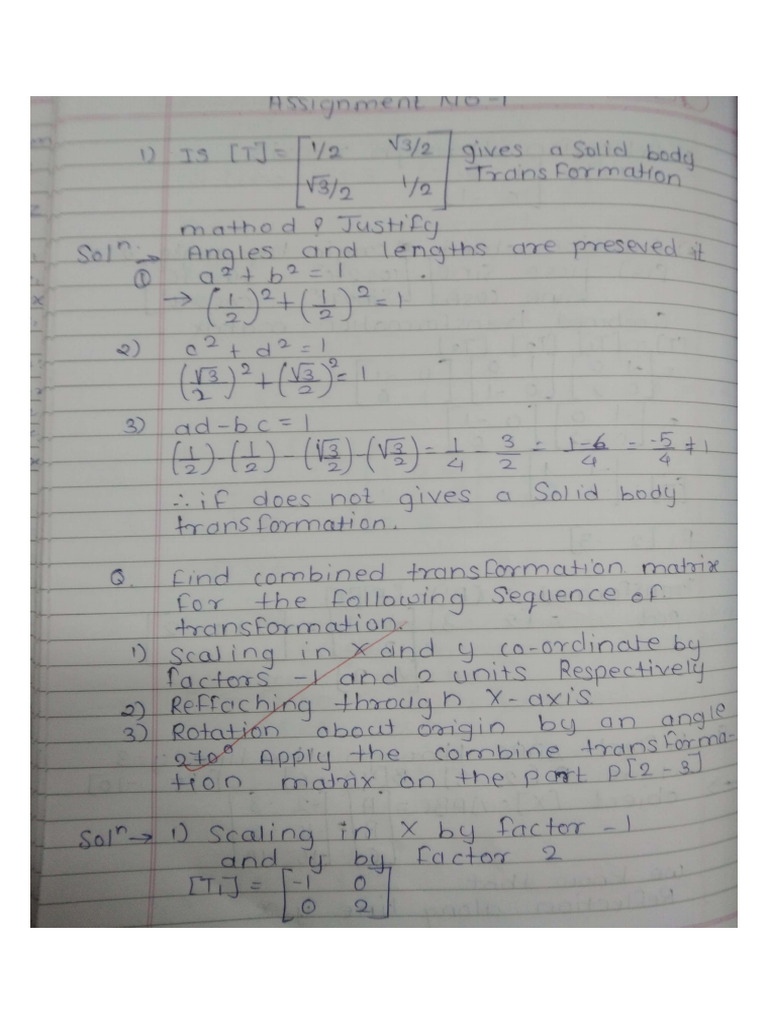 Assignment No-1
1) Is [T] = [1/2 √3/2 gives a Solid body
√3/2 1/2] Transformation
mathod ? Justify
Solⁿ. → Angles and lengths are preseved it
① a² + b² = 1
→ (1/2)² + (1/2)² = 1
2) c² + d² = 1
(√3/2)² + (√3/2)² = 1
3) ad - bc = 1
(1/2) - (1/2) - (√3/2) - (√3/2) = 1/4 - 3/2 = 1-6/4 = -5/4 ≠ 1
∴ if does not gives a Solid body
transformation.
Q. Find combined transformation matrix
for the following Sequence of
transformation.
1) Scaling in X and y co-ordinate by
factors -1 and 2 units Respectively
2) Reffaching through X-axis
3) Rotation about origin by an angle
270° Apply the combine transforma-
tion matrix on the part P[2 -3]
Solⁿ → 1) Scaling in X by factor -1
and y by factor 2
[T₁] = [-1 0
0 2]